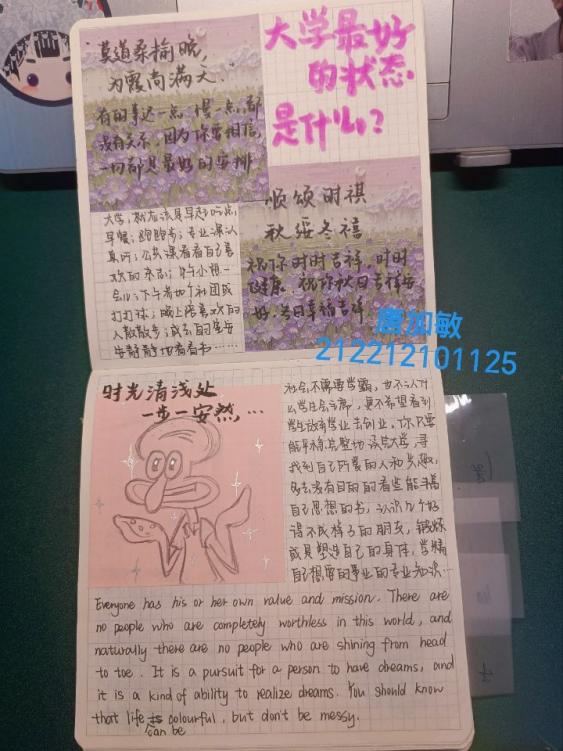 莫道桑榆晚，
为霞尚满天.
有的事迟一点,慢一点,都
没有关系,因为你要相信,
一切都是最好的安排
大学最好
的状态
是什么?
顺颂时祺
秋绥冬禧
祝你时时吉祥 时时
健康,祝你秋日吉祥安
好,冬日幸福吉祥
大学,就应该是早起吃点
早餐;跑跑步;专业课认
真听;公共课看看自己喜
欢的杂志;中午小憩一
会儿;下午参加个社团或
打打球;晚上陪喜欢的
人散散步;或者的安安
安静静地看看书……
唐加敏
212212101125
时光清浅处
一步一安然,…
社会不需要学霸,也不认什
么学生会主席,更不希望看到
学生放弃学业去创业。你只要
能平稳完整地读完大学,寻
找到自己所爱的人和失趣,
多去没有目的的看些能丰富
自己思想的书,认识几个好
得不成样子的朋友,锻炼
或是塑造自己的身体,学精
自己想要的事业的专业知识…
Everyone has his or her own value and mission. There are
no people who are completely worthless in this world, and
naturally there are no people who are shining from head
to toe. It is a pursuit for a person to have dreams, and
it is a kind of ability to realize dreams. You should know
that life is colourful, but don't be messy.
can be